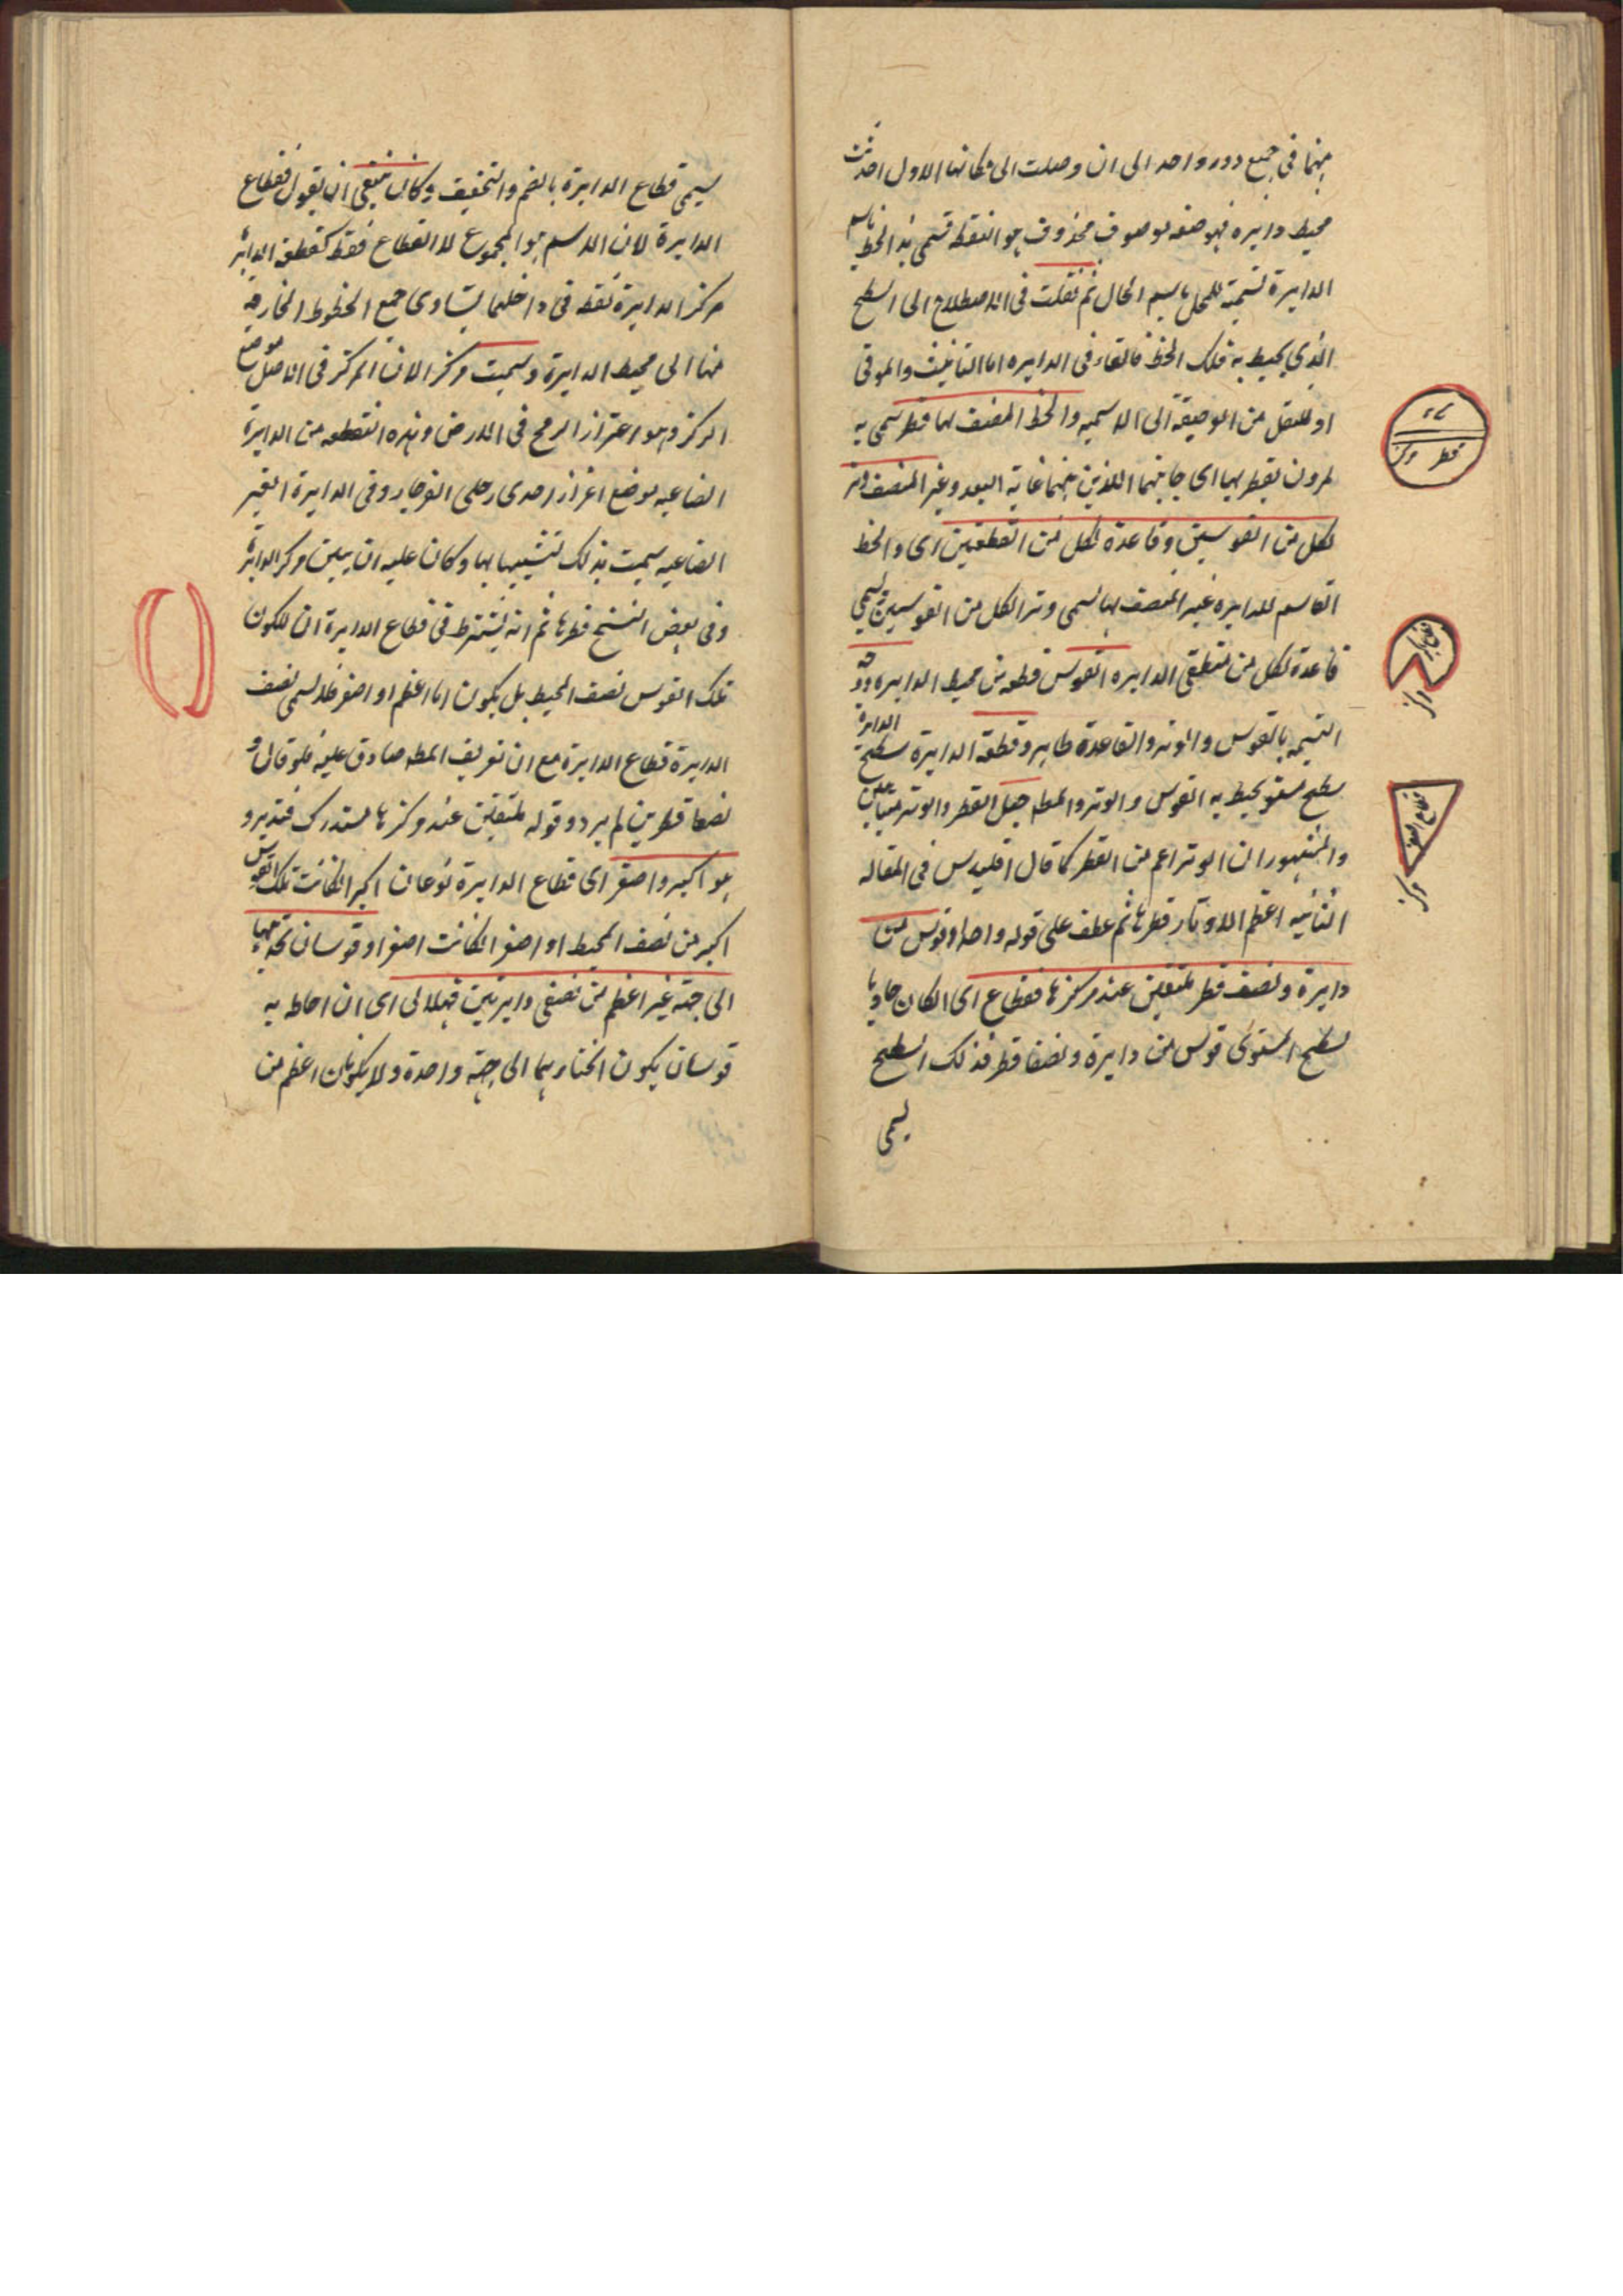 منهما فى جميع دور واحد الى ان وصلت الى مكانها الاول احدثت
محيط دايره فهو صفه لموصوف محذوف هو النقطه تسمى هذا الخط باسم
الدايرة تسمية للمحل باسم الحال ثم نقلت فى الاصطلاح الى السطح
الذى يحيط به ذلك الخط فالتاء فى الدايره اما للتانيث والموتى
او للنقل من الوصفية الى الاسميه والخط المنصف لها قطر سمى به
لمرون بقطريها اى جانبيها اللذين بينهما غاية البعد وغير المنصف وتر
لكل من القوسين وقاعدة لكل من القطعتين اى والخط
القاسم للدايره غير المنصف لها يسمى وترا لكل من القوسين ويسمى
قاعدة لكل من قطعتى الدايره القوس قطعه من محيط الدايره ووجه
التسميه بالقوس والوتر والقاعدة ظاهر وقطعة الدايرة سطح
الدايرة
سطح مستو يحيط به القوس والوتر والمصه جعل القطر والوتر متباينين
والمشهور ان الوتر اعم من القطر كما قال اقليدس فى المقاله
الثانيه اعظم الاوتار قطرها ثم عطف على قوله واحد او قوس من
دايرة ونصفا قطر ملتقيين عند مركزها فقطاع اى ان كان حاويا
لسطح المستوى قوس من دايرة ونصفا قطر فذلك السطح
يسمى
قطاع الدايره
قطر
مركز
يسمى قطاع الدايرة بالضم والتخفيف وكان ينبغى ان يقول فقطاع
الدايرة لان الاسم هو المجموع لا القطاع فقط كقطعة الدايرة
مركز الدايرة نقطه فى داخلها يتساوى جميع الخطوط الخارجه
منها الى محيط الدايرة وسميت مركز الان المركز فى الاصل موضع
الركز وهو اغتراز الرمح فى الارض وهذه النقطه من الدايرة
الصناعيه موضع اغراز احدى رجلى الفرجار وفى الدايرة الغير
الصناعيه سميت بذلك تشبيها بها وكان عليه ان يبين مركز الدايرة
وفى بعض النسخ قطرها ثم انه يشترط فى قطاع الدايرة ان لا يكون
تلك القوس نصف المحيط بل يكون اما اعظم او اصغر فلا يسمى نصف
الدايرة قطاع الدايرة مع ان تعريف المصه صادق عليه فلو قال و
نصفا قطرين لم يرد وقوله ملتقيين عند مركزها مستدرك فتدبر و
هو اكبر واصغر اى قطاع الدايرة نوعان اكبر ان كانت تلك القوس
اكبر من نصف المحيط او اصغر ان كانت اصغر او قوسان تحديبهما
الى جهة غير اعظم من نصفى دايرتين فهلالى اى ان احاط به
قوسان يكون انحناؤهما الى جهة واحدة ولا يكونان اعظم من